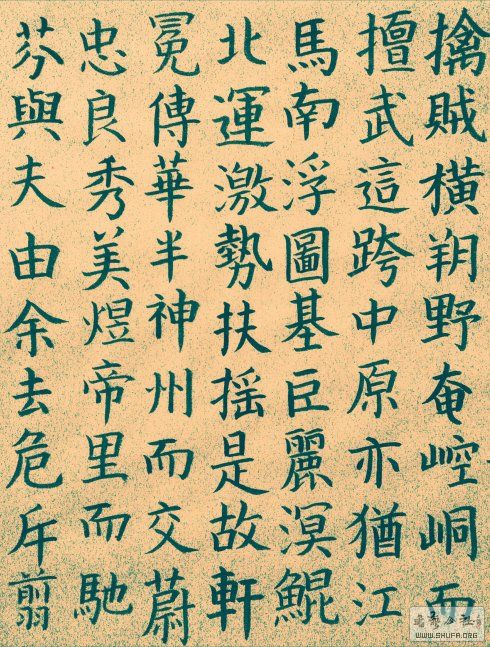 擒賊横朔野奄崆峒而
擅武這跨中原亦猶江
馬南浮圖基巨麗溟鯤
北運激勢扶摇是故軒
冕傳華半神州而交蔚
忠良秀美煜帝里而馳
芬與夫由余去危斥翦
WWW.SHUFA.ORG